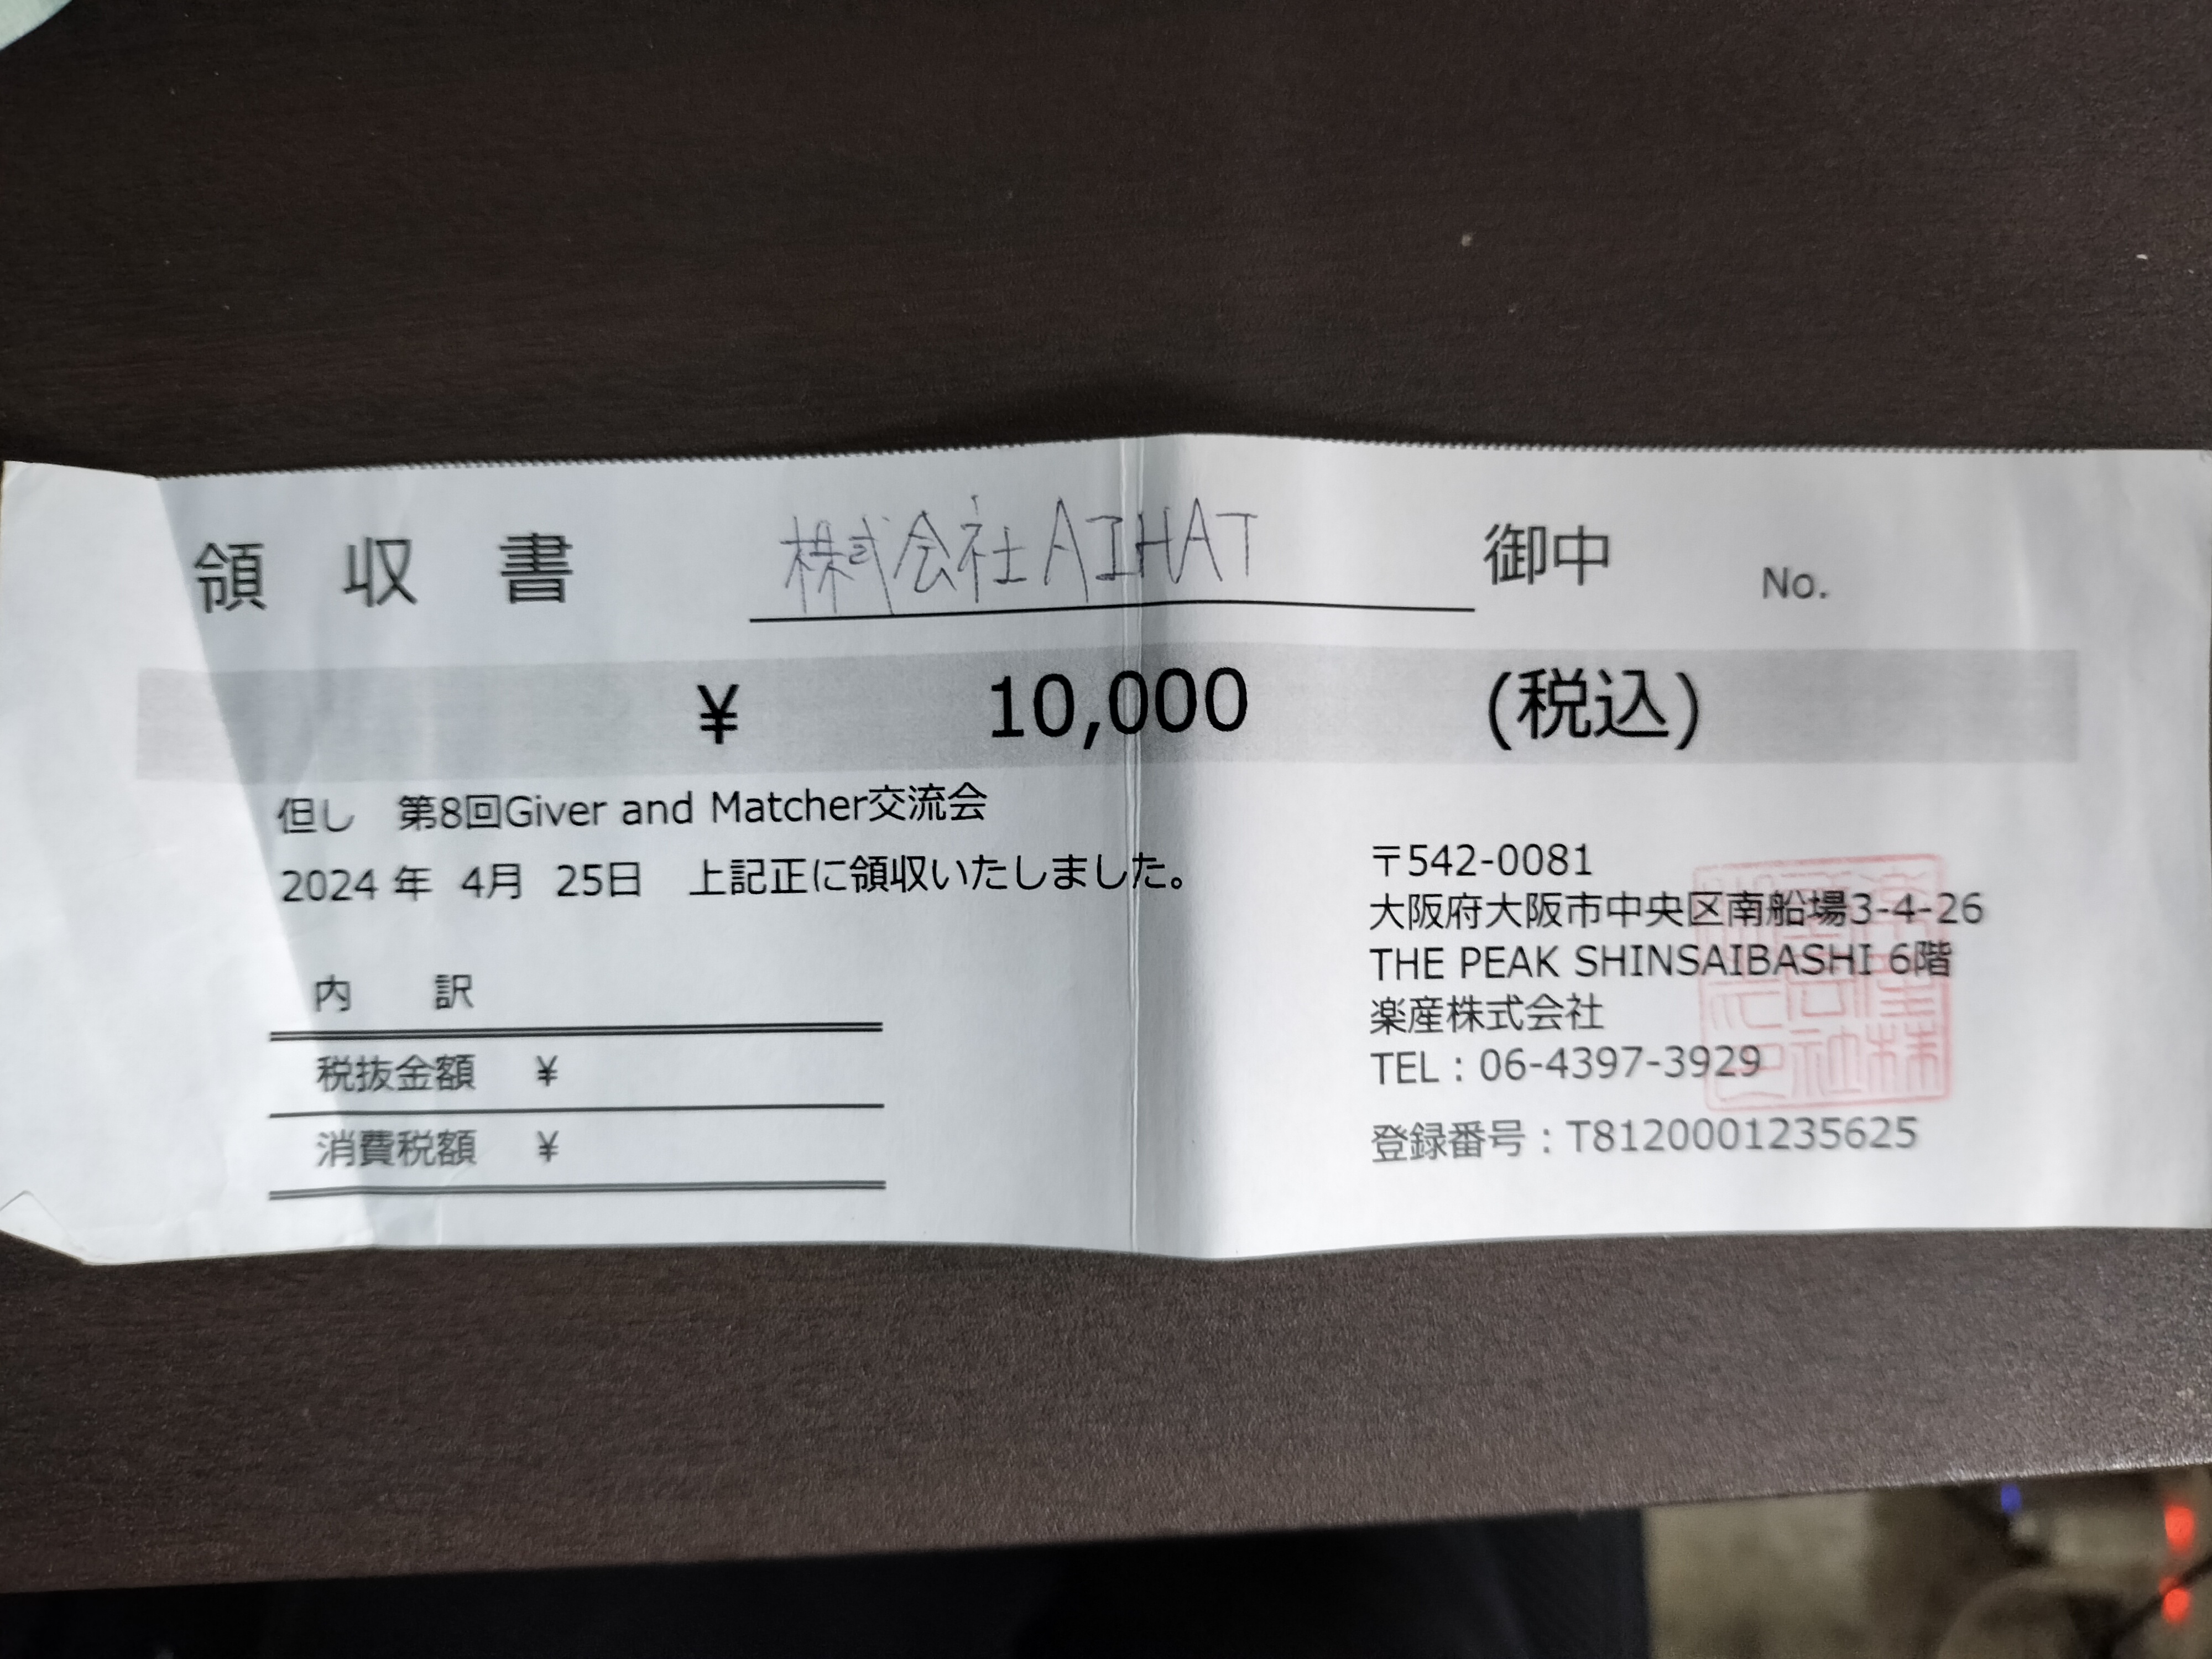 領 収 書 株式会社AIHAT 御中 No.
¥ 10,000 (税込)
但し 第8回Giver and Matcher交流会
2024 年 4月 25日 上記正に領収いたしました。
内 訳
税抜金額 ¥
消費税額 ¥
〒542-0081
大阪府大阪市中央区南船場3-4-26
THE PEAK SHINSAIBASHI 6階
楽産株式会社
TEL：06-4397-3929
登録番号：T8120001235625